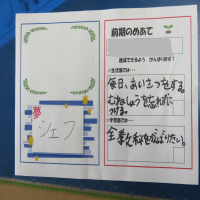 夢
シェフ
前期のめあて
達成できるよう がんばります!
※生活面では…
毎日、あいさつをする。
むねしょうを忘れずに
つける。
※学習面では…
全教科をがんばりたい。